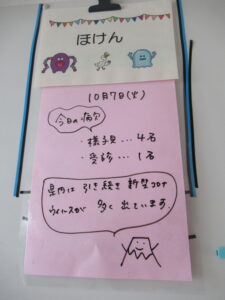 ほけん
10月7日(火)
今日の病欠
・様子見…4名
・受診…1名
県内は引き続き新型コロナ
ウイルスが多く出ています。